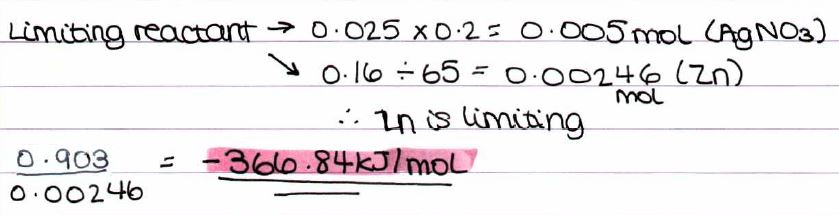 Limiting reactant → 0.025 x 0.2 = 0.005 mol (AgNO3)
↘ 0.16 ÷ 65 = 0.00246 (Zn)
mol
∴ Zn is limiting
0.903
0.00246 = -366.84kJ/mol